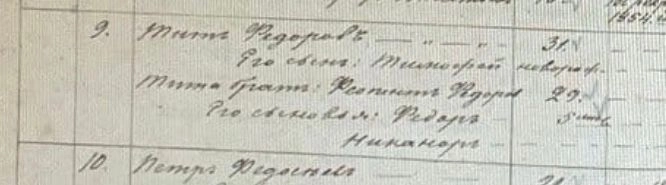 1854
9. Титъ Ѳедоровъ — „ — „ 31.
Его сынъ: Тимофей новорож.
Тита братъ: Феопентъ Ѳедоров 29.
Его сыновья: Ѳедоръ 5
Никаноръ
10. Петръ Ѳедосѣевъ